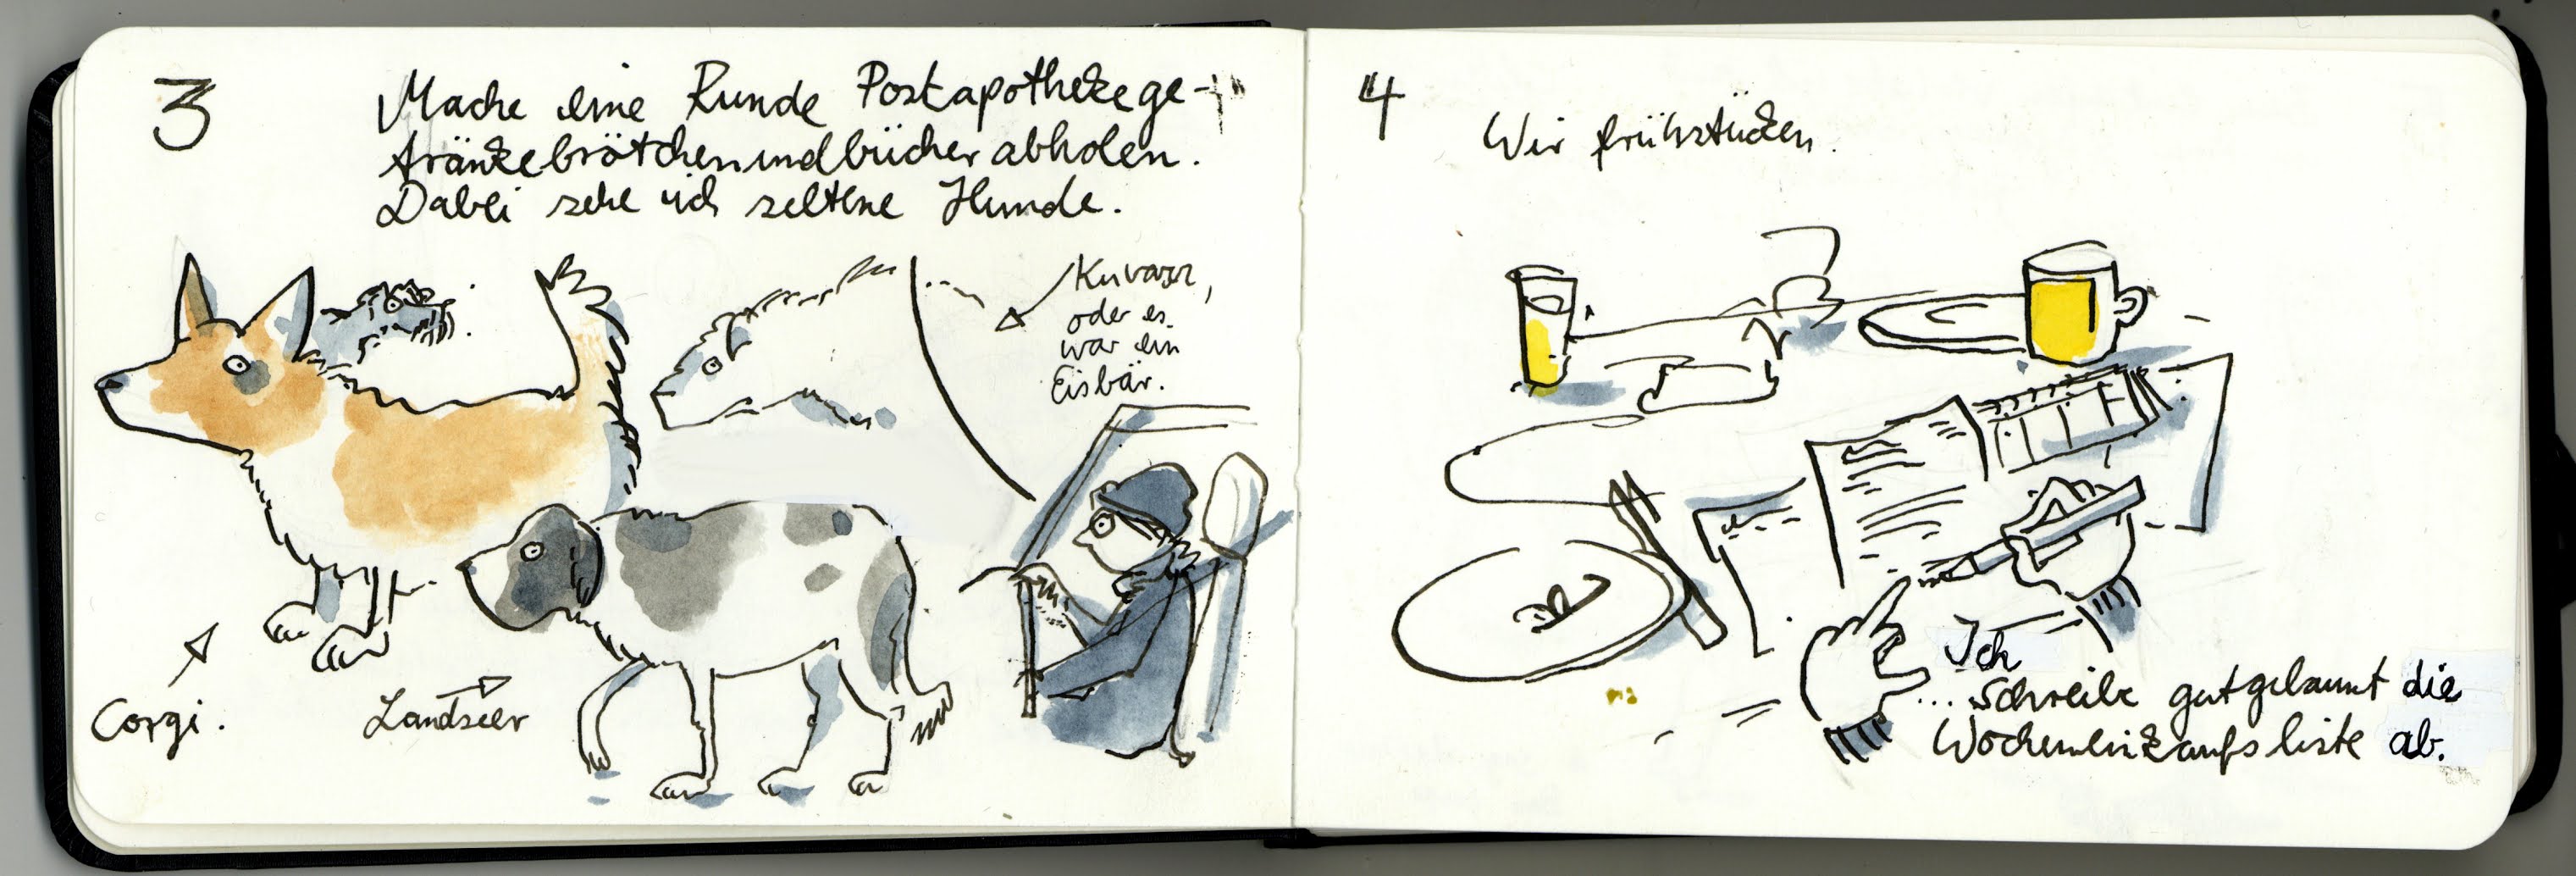 3
Mache eine Runde Postapothekege-
tränkebrötchenundbücher abholen.
Dabei sehe ich seltene Hunde.
Kuvasz,
oder es
war ein
Eisbär.
Corgi.
Landseer
4
Wir frühstücken.
Ich
... schreibe gutgelaunt die
Wocheneinkaufsliste ab.